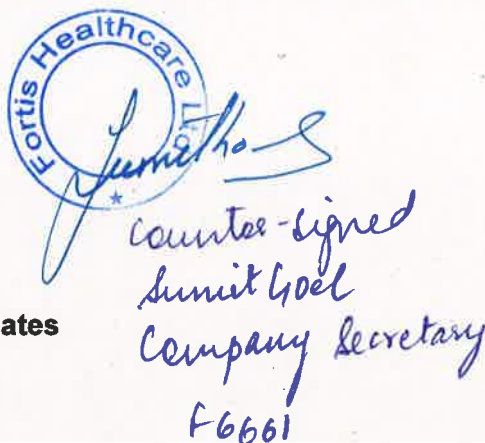 Fortis Healthcare Ltd.
Counter-signed
Sumit Goel
Company Secretary
F6661
ates